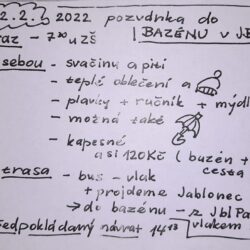 2.2. 2022 pozvánka do
BAZÉNU v JB
raz - 7³⁰ u ZŠ
sebou - svačinu a pití
- teplé oblečení a
- plavky + ručník + mýdl
- možná také
- kapesné
asi 120Kč (bazén +
cesta
trasa - bus - vlak
+ projdeme Jablonec
→ do bazénu - z Jbl Pa
vlakem
ředpokládaný návrat 14¹³